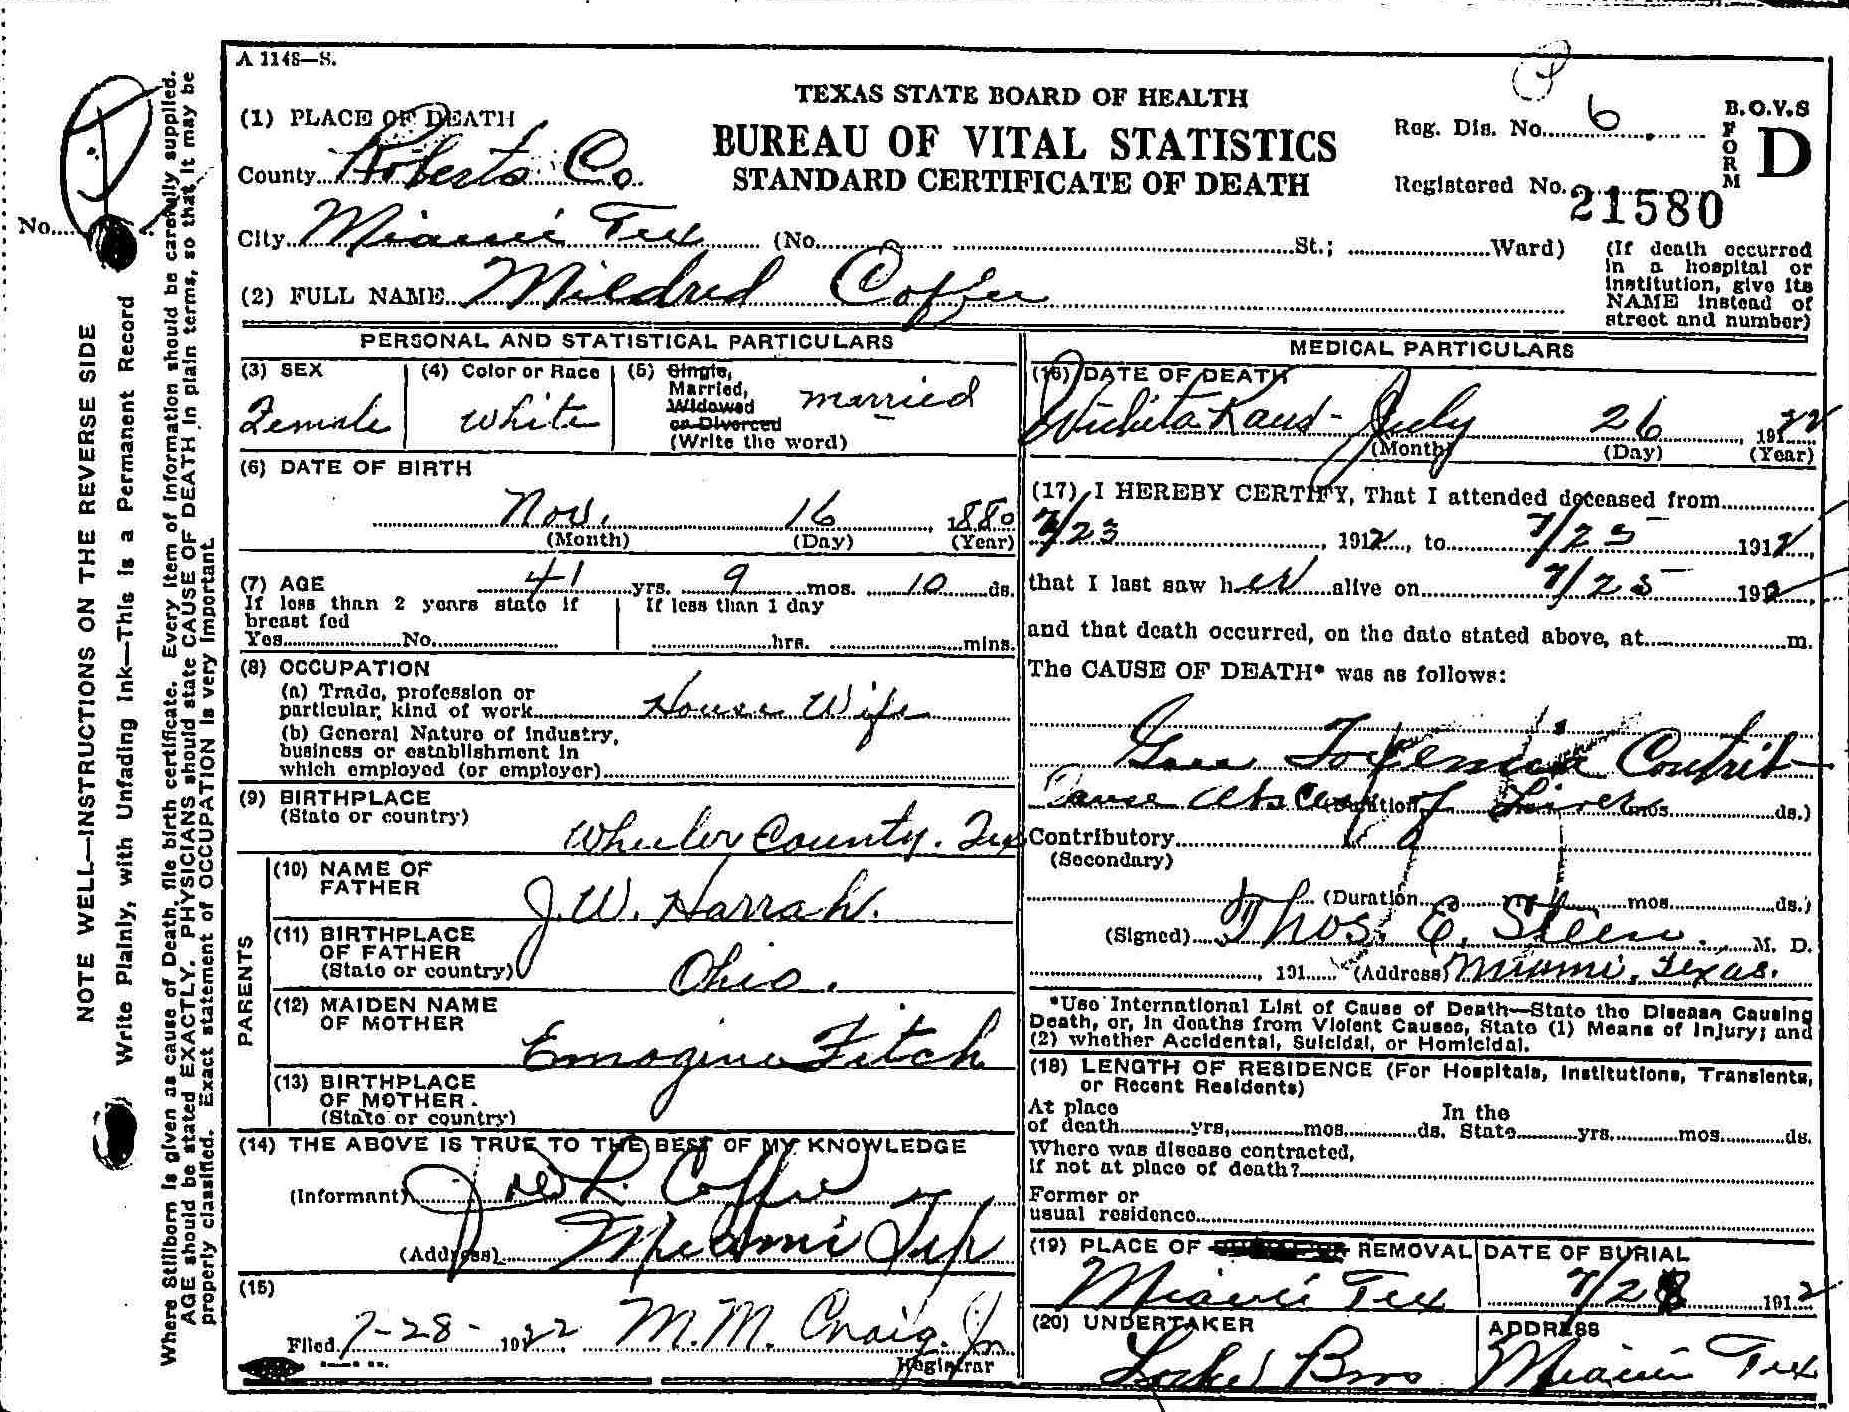 A 1148—S.
TEXAS STATE BOARD OF HEALTH
BUREAU OF VITAL STATISTICS
STANDARD CERTIFICATE OF DEATH
Reg. Dis. No. 6
B.O.V.S
FORM D
Registered No. 21580
(1) PLACE OF DEATH
County Roberts Co
No.
City Miami Tex (No. St.; Ward)
(If death occurred in a hospital or institution, give its NAME instead of street and number)
(2) FULL NAME Mildred Coffee
NOTE WELL—INSTRUCTIONS ON THE REVERSE SIDE
Write Plainly, with Unfading Ink—This is a Permanent Record
Where Stillborn is given as cause of Death, file birth certificate. Every item of information should be carefully supplied.
AGE should be stated EXACTLY. PHYSICIANS should state CAUSE OF DEATH in plain terms, so that it may be
properly classified. Exact statement of OCCUPATION is very important.
PERSONAL AND STATISTICAL PARTICULARS
(3) SEX
Female
(4) Color or Race
White
(5) Single,
Married,
Widowed
or Divorced
(Write the word)
married
(6) DATE OF BIRTH
Nov. 16, 1880
(Month) (Day) (Year)
(7) AGE 41 yrs. 9 mos. 10 ds.
If less than 2 years state if breast fed
Yes No.
If less than 1 day
hrs. mins.
(8) OCCUPATION
(a) Trade, profession or
particular, kind of work House Wife
(b) General Nature of Industry,
business or establishment in
which employed (or employer)
(9) BIRTHPLACE
(State or country)
Wheeler County. Tex
PARENTS
(10) NAME OF FATHER
J. W. Harrah.
(11) BIRTHPLACE OF FATHER
(State or country)
Ohio.
(12) MAIDEN NAME OF MOTHER
Emogine Fitch
(13) BIRTHPLACE OF MOTHER.
(State or country)
(14) THE ABOVE IS TRUE TO THE BEST OF MY KNOWLEDGE
(Informant) L. Coffee
(Address) Miami Tex
(15)
Filed 7-28- 1922 M. M. Craig. Jr
Registrar
MEDICAL PARTICULARS
(16) DATE OF DEATH
Wichita Kans- July 26, 1922
(Month) (Day) (Year)
(17) I HEREBY CERTIFY, That I attended deceased from
7/23, 1912, to 7/25 1912,
that I last saw her alive on 7/25 1912,
and that death occurred, on the date stated above, at m.
The CAUSE OF DEATH* was as follows:
Contrib
Cause Abscess of Liver
(Duration mos. ds.)
Contributory
(Secondary)
(Duration mos. ds.)
(Signed) Thos. E. Steen., M. D.
, 191 (Address) Miami, Texas.
*Use International List of Cause of Death—State the Disease Causing
Death, or, in deaths from Violent Causes, State (1) Means of Injury; and
(2) whether Accidental, Suicidal, or Homicidal.
(18) LENGTH OF RESIDENCE (For Hospitals, Institutions, Transients,
or Recent Residents)
At place of death yrs. mos. ds. In the State yrs. mos. ds.
Where was disease contracted,
if not at place of death?
Former or
usual residence
(19) PLACE OF REMOVAL
Miami Tex
DATE OF BURIAL
7/28 1912
(20) UNDERTAKER
Locke Bros
ADDRESS
Miami Tex